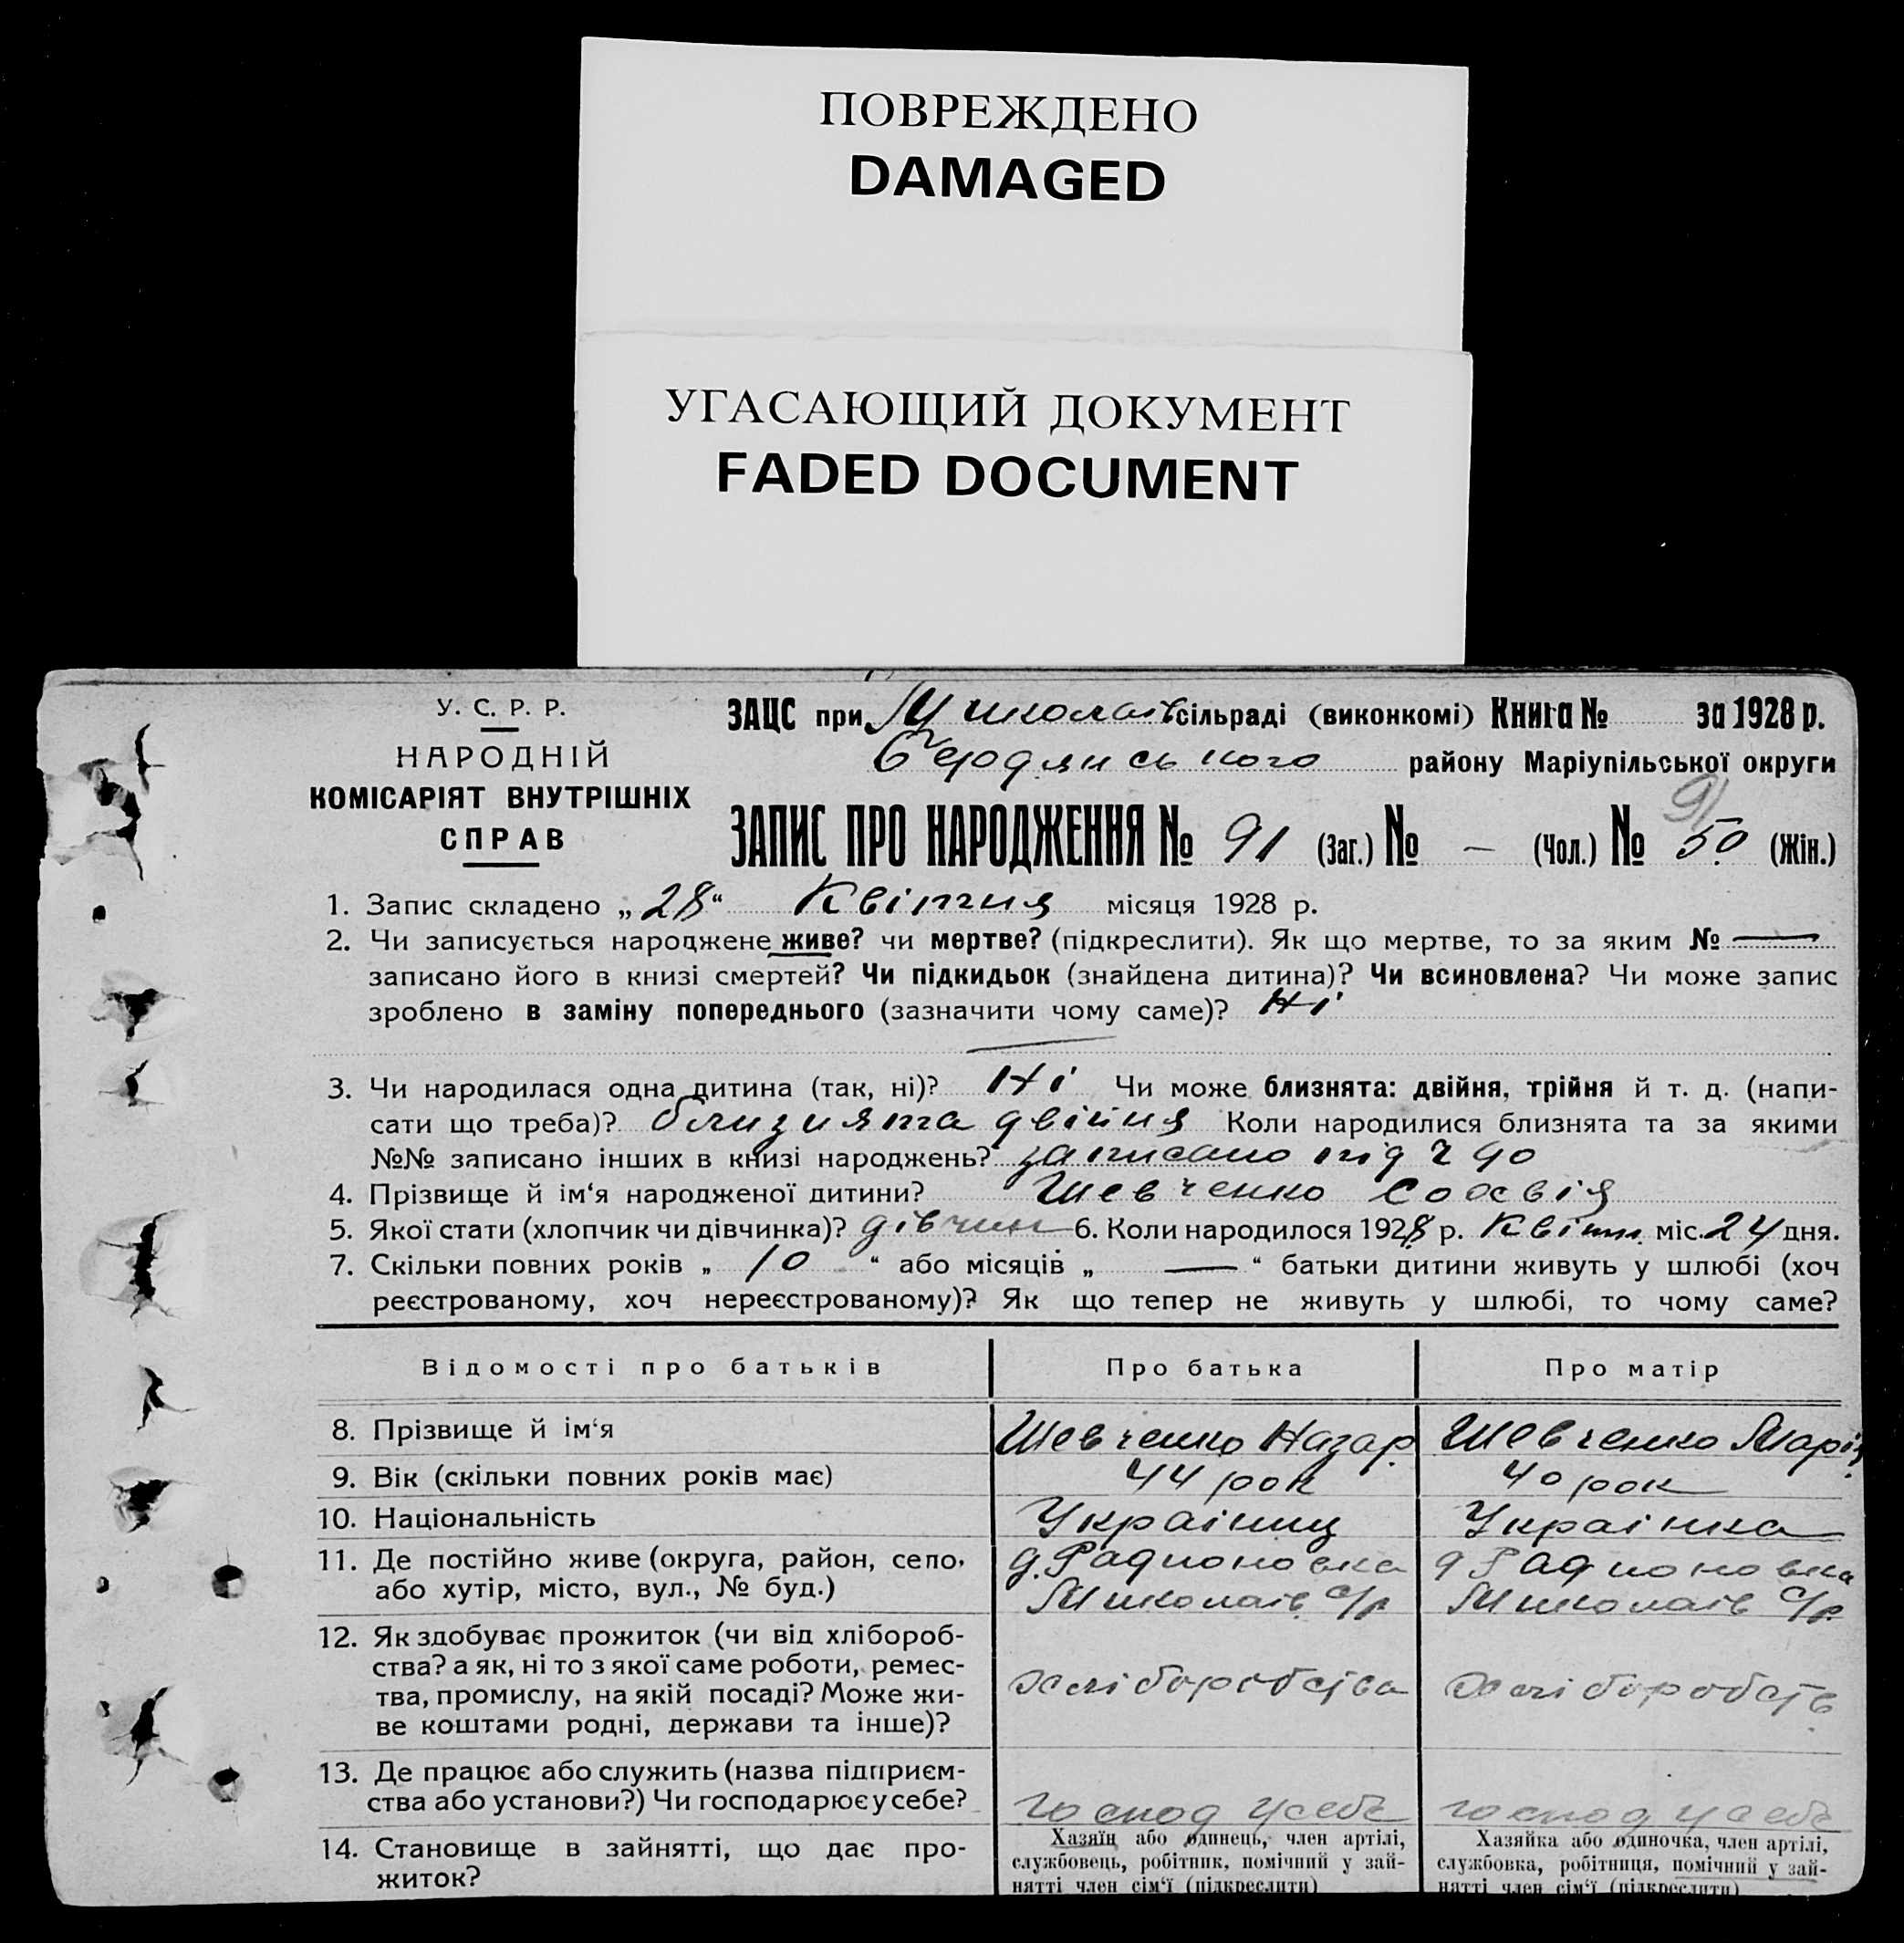 ПОВРЕЖДЕНО
DAMAGED
УГАСАЮЩИЙ ДОКУМЕНТ
FADED DOCUMENT
У. С. Р. Р.
НАРОДНІЙ
КОМІСАРІЯТ ВНУТРІШНІХ
СПРАВ
ЗАЦС при Миколаїв сільраді (виконкомі) Книга № за 1928 р.
Бердянського району Маріупільської округи
91
ЗАПИС ПРО НАРОДЖЕННЯ № 91 (Заг.) № – (Чол.) № 50 (Жін.)
1. Запис складено „28“ Квітня місяця 1928 р.
2. Чи записується народжене живе? чи мертве? (підкреслити). Як що мертве, то за яким № —
записано його в книзі смертей? Чи підкидьок (знайдена дитина)? Чи всиновлена? Чи може запис
зроблено в заміну попереднього (зазначити чому саме)? Ні
3. Чи народилася одна дитина (так, ні)? Ні Чи може близнята: двійня, трійня й т. д. (напи-
сати що треба)? близнята двійня Коли народилися близнята та за якими
№№ записано інших в книзі народжень? записано під Ч 90
4. Прізвище й ім‘я народженої дитини? Шевченко Софія
5. Якої стати (хлопчик чи дівчинка)? дівчин 6. Коли народилося 1928 р. Квітн. міс. 24 дня.
7. Скільки повних років „ 10 “ або місяців „ — “ батьки дитини живуть у шлюбі (хоч
реєстрованому, хоч нереєстрованому)? Як що тепер не живуть у шлюбі, то чому саме?
Відомості про батьків Про батька Про матір
8. Прізвище й ім‘я Шевченко Назар Шевченко Марія
9. Вік (скільки повних років має) 44 рок 40 рок
10. Національність Українц Українка
11. Де постійно живе (округа, район, село, д. Радионовка д Радионовка
або хутір, місто, вул., № буд.) Миколаїв с/р Миколаїв с/р
12. Як здобуває прожиток (чи від хлібороб-
ства? а як, ні то з якої саме роботи, ремес-
тва, промислу, на якій посаді? Може жи- хліборобства хліборобств
ве коштами родні, держави та інше)?
13. Де працює або служить (назва підприєм-
ства або установи?) Чи господарює у себе? господ у себе господ у себе
14. Становище в зайнятті, що дає про-
житок?
Хазяїн або одинець, член артілі,
службовець, робітник, помічний у зай-
нятті член сім‘ї (підкреслити)
Хазяйка або одиночка, член артілі,
службовка, робітниця, помічний у зай-
нятті член сім‘ї (підкреслити)